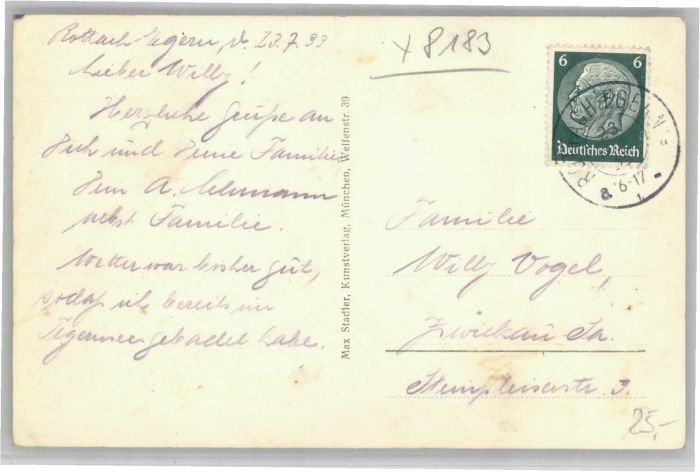 Rottach-Egern, d. 23.7.33
Lieber Willy!
Herzliche Grüße an
Dich und Deine Familie
Dein A. Lehmann
nebst Familie.
Wetter war bisher gut,
sodaß ich bereits im
Tegernsee gebadet habe.
Max Stadler, Kunstverlag, München, Welfenstr. 39
+ 8183
6 6
Deutsches Reich
8. 6-17
Familie
Willy Vogel,
Zwickau Sa.
3.
25,-